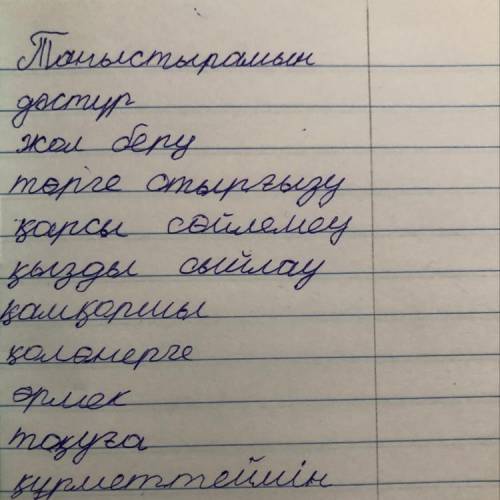 Таныстырамын
дәстүр
жол беру
төрге отырғызу
қарсы сөйлемеу
қызды сыйлау
қамқоршы
қолөнерге
өрмек
тоқуға
құрметтеймін